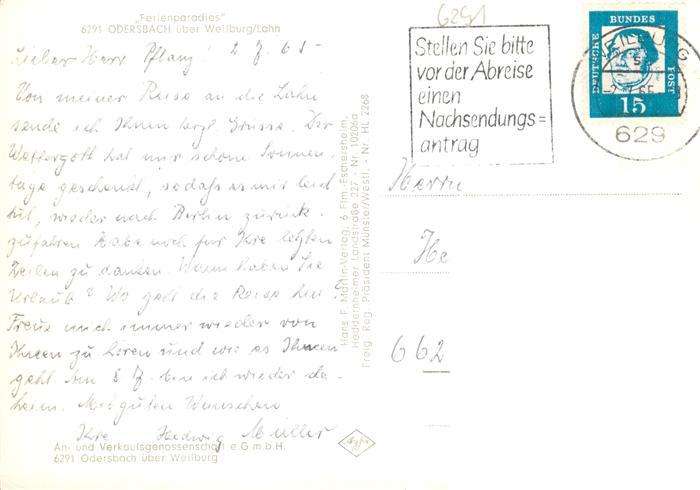 „Ferienparadies"
6291 ODERSBACH über Weilburg/Lahn
Lieber Herr Pflanz! 2 7. 65 -
Von meiner Reise an die Lahn
sende ich Ihnen herzl. Grüsse. Der
Wettergott hat mir schöne Sonnen-
tage geschenkt, sodass es mir leid
tut, wieder nach Berlin zurück-
zufahren Habe noch für Ihre letzten
Zeilen zu danken. Wann haben Sie
Urlaub? Wo geht die Reise hin?
Freue mich immer wieder von
Ihnen zu hören und wie es Ihnen
geht. Am 8 7. bin ich wieder da-
heim. Mit guten Wünschen
Ihre Hedwig Müller
An- und Verkaufsgenossenschaft e G m b H.
6291 Odersbach über Weilburg
Hans F. Martin-Verlag, 6 Ffm.-Eschersheim,
Heddernheimer Landstraße 227 - Nr. 10206a
Freig. Reg. Präsident Münster/Westf. - Nr. HL 2268
Agfa
6291
Stellen Sie bitte
vor der Abreise
einen
Nachsendungs=
antrag
DEUTSCHE BUNDES POST
15
WEILBURG
-2.7.65
629
Herrn
He
662